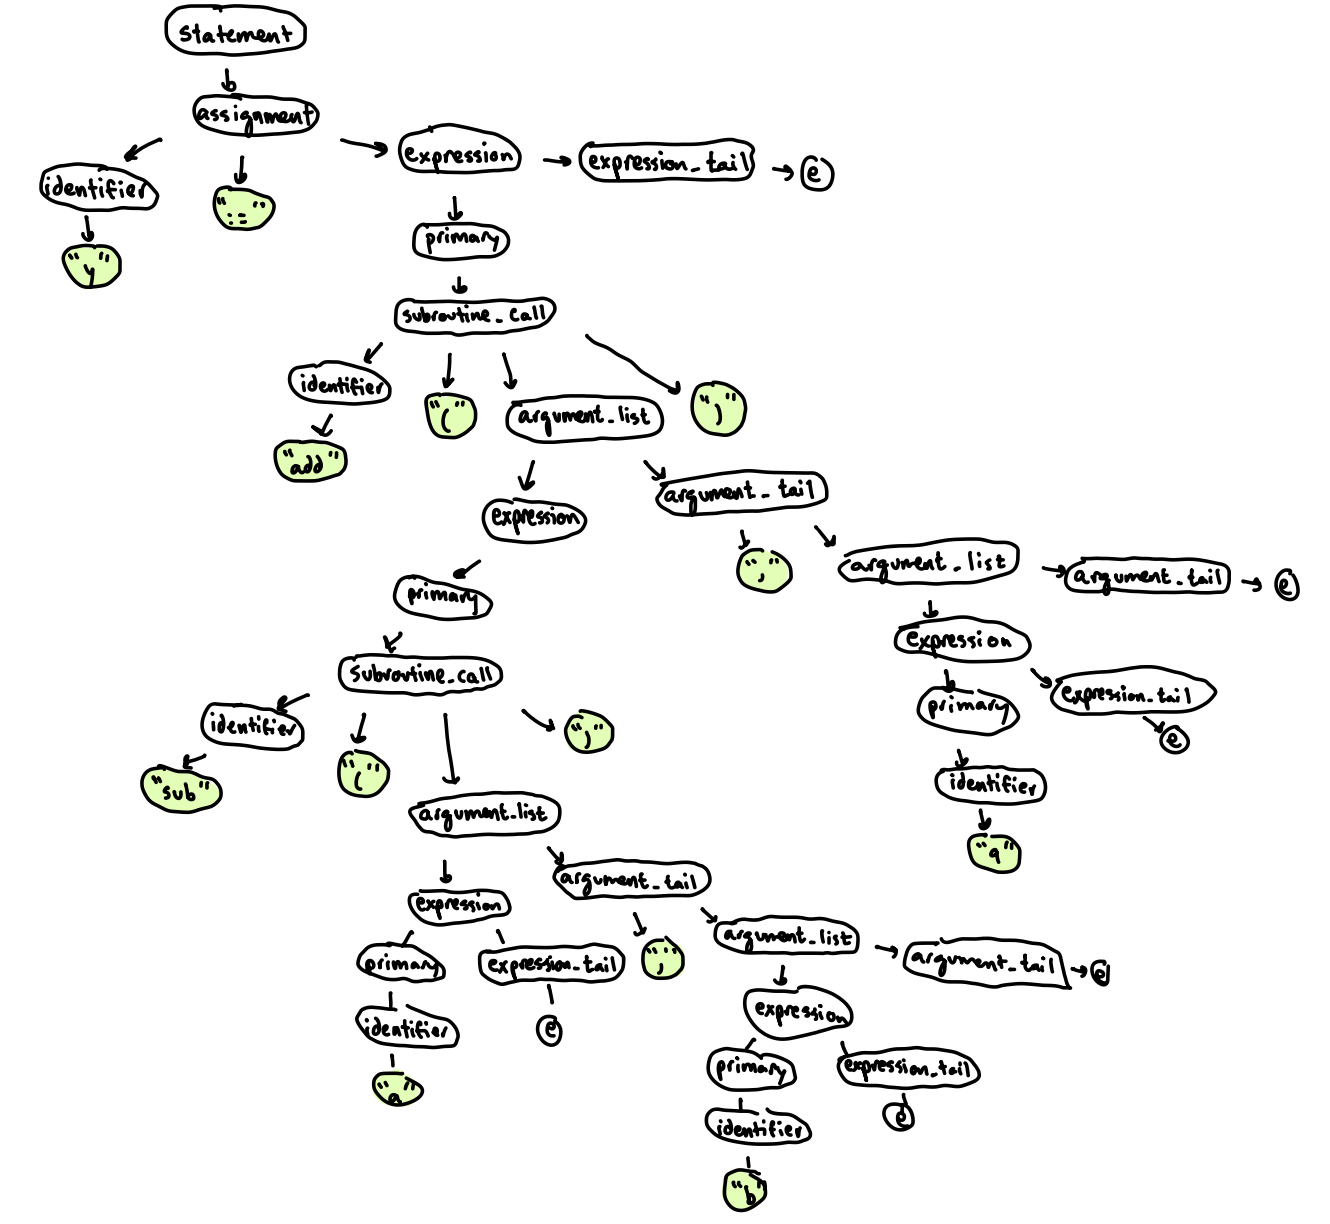 statement
assignment
identifier
":="
expression
expression_tail
e
"y"
primary
subroutine_call
identifier
"("
argument_list
")"
"add"
expression
argument_tail
","
argument_list
argument_tail
e
primary
expression
subroutine_call
primary
expression_tail
e
identifier
"("
")"
"sub"
identifier
argument_list
"q"
expression
argument_tail
primary
expression_tail
","
argument_list
argument_tail
e
identifier
e
expression
"a"
primary
expression_tail
e
identifier
"b"